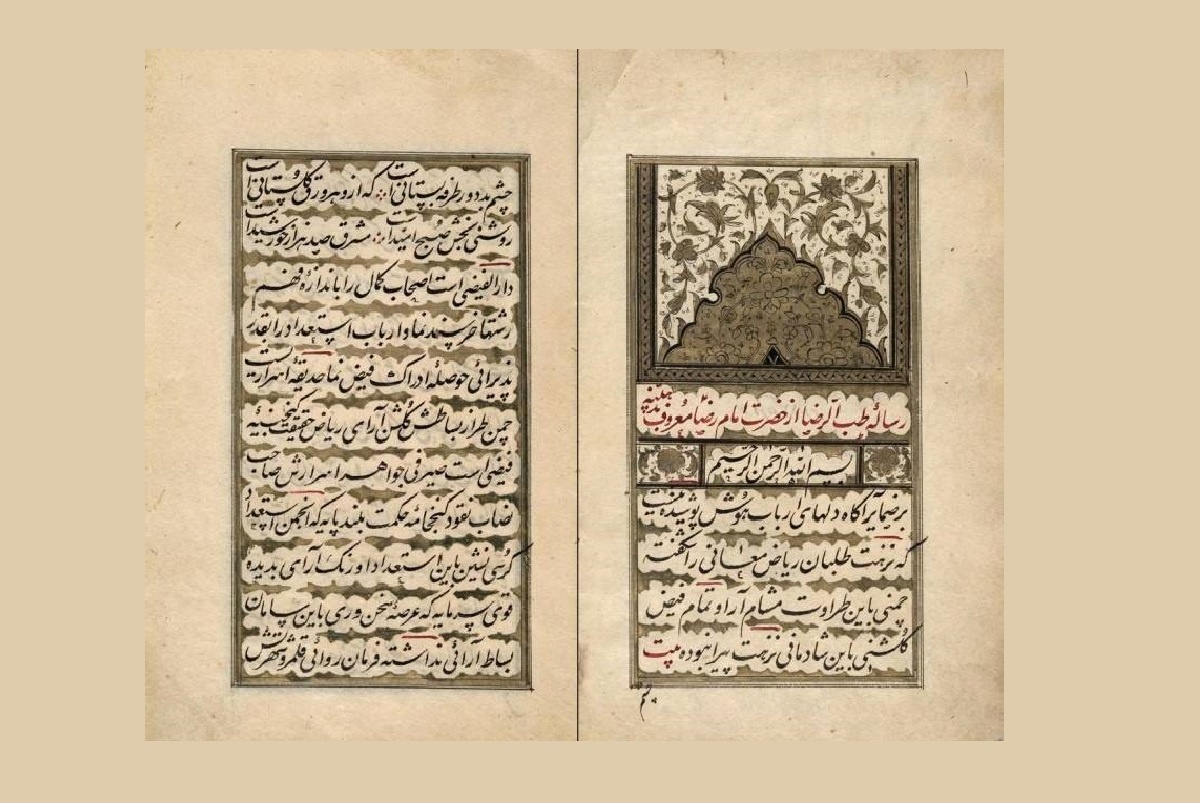 رسالهٔ طب الرضا از حضرت امام رضا معروف بذهبیه
بسم الله الرحمن الرحیم
بر ضمایر آگاه دلهای ارباب هوش پوشیده نیست
که نزهت طلبان ریاض معانی را شکفته
چمنی باین طراوت مشام آرا و تمام فیض
گلشنی باین شادمانی نزهت پیرا نبوده بیت
چشم
چشم بد دور طرفه بستانی است که ازو هر ورق گلستانی است
روشنی بخش صبح امیداست مشرق صد هزار خورشیداست
دار الفیضی است اصحاب کمال را باندازهٔ فهم
خرسند نما و ارباب استعداد را بقدر
پذیرائی حوصله ادراک فیض نما حدیقهٔ اسراریست
چمن طراز مساطش گلشن آرای ریاض حقیقت گنجینهٔ
فیضی است صیرفی جواهر اسرارش صاحب
نصاب نقود گنجخانهٔ حکمت بلند پایه که انجمن استعداد
کرسی نشین باین استعداد اورنگ آرای ندیده
قوی سرمایه که عرصهٔ سخن وری باین سامان
بساط آرائی نداشته فرمان روائی قلمرو